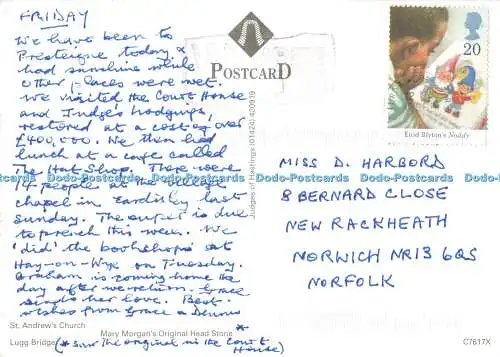 FRIDAY
We have been to
Presteigne today &
had sunshine while
other places were wet.
We visited the Court House
and Judge's Lodgings,
restored at a cost of over
£400,000. We then had
lunch at a cafe called
The Hat Shop. There were
14 people at the village
chapel in Eardisley last
Sunday. The is due
to preach this week. We
'did' the bookshops at
Hay-on-Wye on Tuesday.
Graham is coming home the
day after we return. Grace
sends her love. Best
wishes from Grace & Dennis
(* Saw the original in the Court
House)
POSTCARD
20
Enid Blyton's Noddy
Judges of Hastings (01424) 420919
MISS D. HARBORD
8 BERNARD CLOSE
NEW RACKHEATH
NORWICH NR13 6QS
NORFOLK
St. Andrew's Church
Lugg Bridge
Mary Morgan's Original Head Stone *
C7617X
Dodo-Postcards Dodo-Postcards Dodo-Postcards Dodo-Postcards Dodo-Postcards